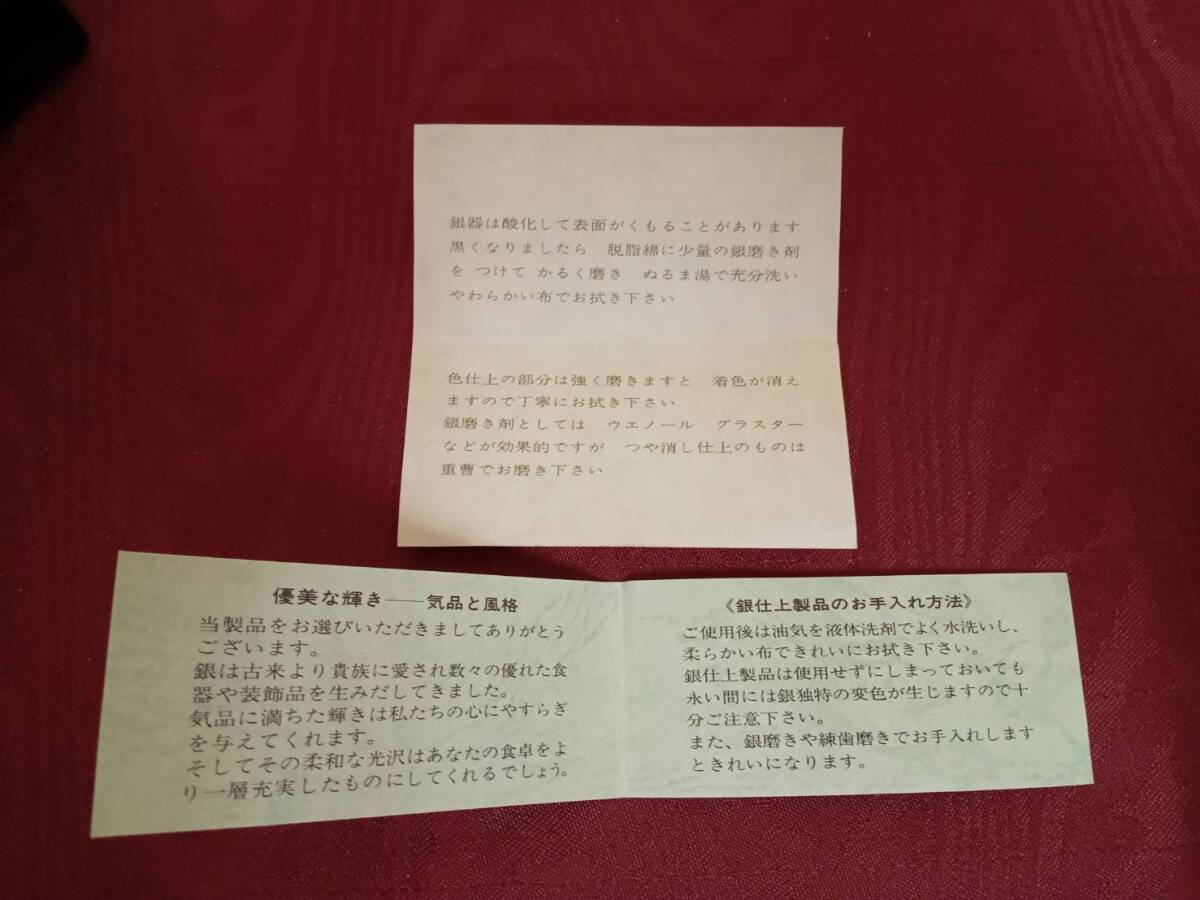 銀器は酸化して表面がくもることがあります
黒くなりましたら 脱脂綿に少量の銀磨き剤
を つけて かるく磨き ぬるま湯で充分洗い
やわらかい布でお拭き下さい
色仕上の部分は強く磨きますと 着色が消え
ますので丁寧にお拭き下さい
銀磨き剤としては ウエノール グラスター
などが効果的ですが つや消し仕上のものは
重曹でお磨き下さい
優美な輝き——気品と風格
当製品をお選びいただきましてありがとう
ございます。
銀は古来より貴族に愛され数々の優れた食
器や装飾品を生みだしてきました。
気品に満ちた輝きは私たちの心にやすらぎ
を与えてくれます。
そしてその柔和な光沢はあなたの食卓をよ
り一層充実したものにしてくれるでしょう。
《銀仕上製品のお手入れ方法》
ご使用後は油気を液体洗剤でよく水洗いし、
柔らかい布できれいにお拭き下さい。
銀仕上製品は使用せずにしまっておいても
永い間には銀独特の変色が生じますので十
分ご注意下さい。
また、銀磨きや練歯磨きでお手入れします
ときれいになります。